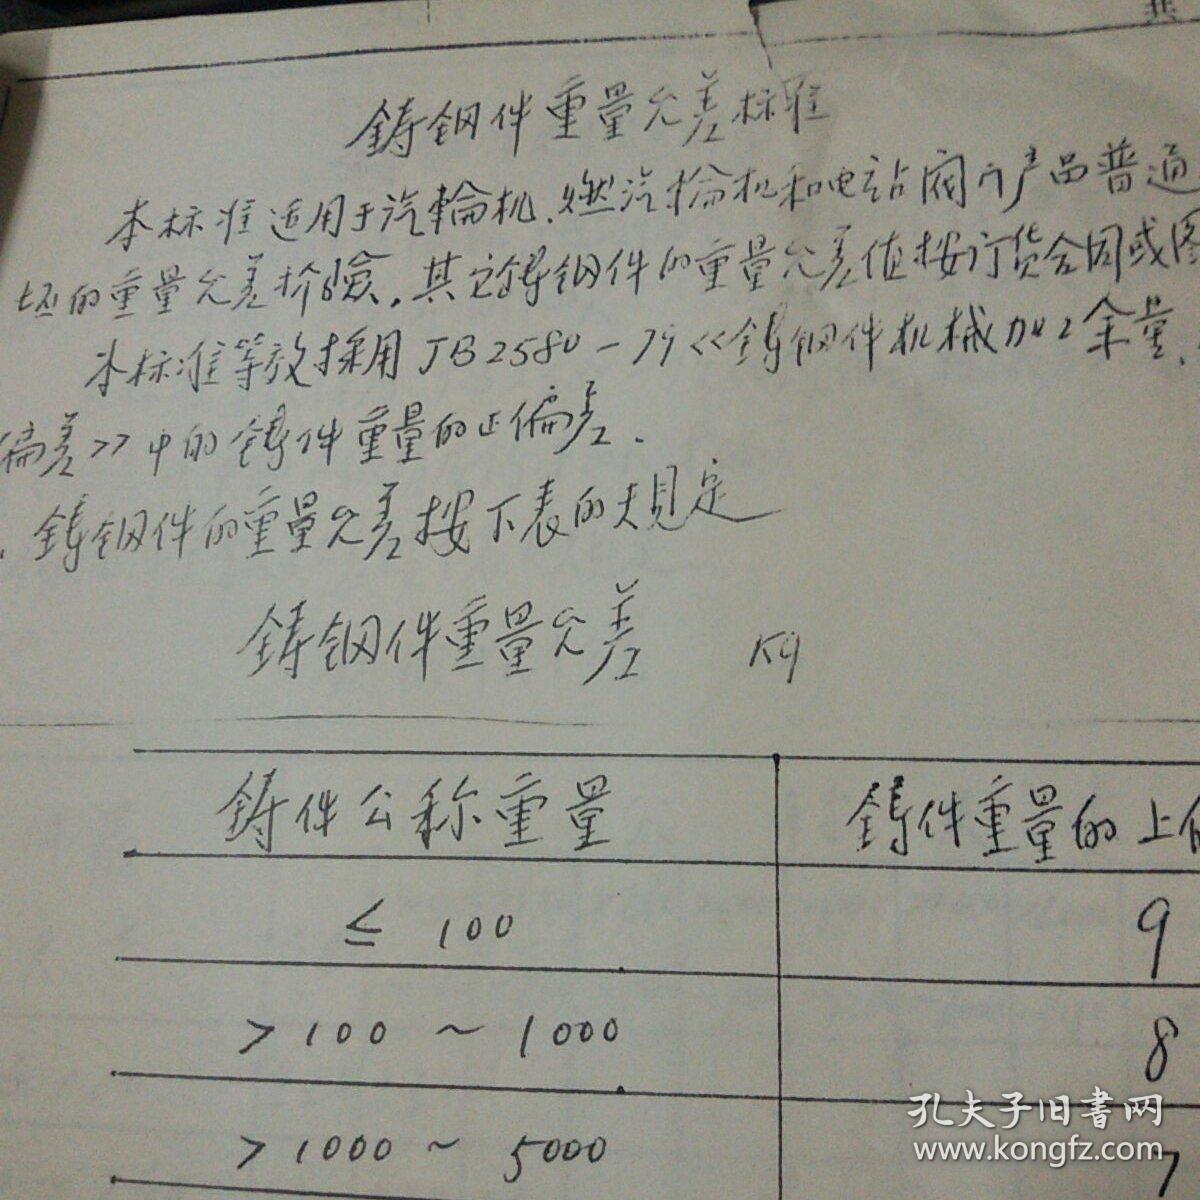 共
铸钢件重量允差标准
本标准适用于汽轮机、燃汽轮机和电站阀门产品普通
坯的重量允差检验,其它铸钢件的重量允差值按订货合同或图
本标准等效採用JB2580-79<<铸钢件机械加工余量、
偏差>>中的铸件重量的正偏差.
.铸钢件的重量允差按下表的规定
铸钢件重量允差 Kg
铸件公称重量 铸件重量的上
≤ 100 9
>100 ~ 1000 8
>1000 ~ 5000 7
孔夫子旧书网
www.kongfz.com